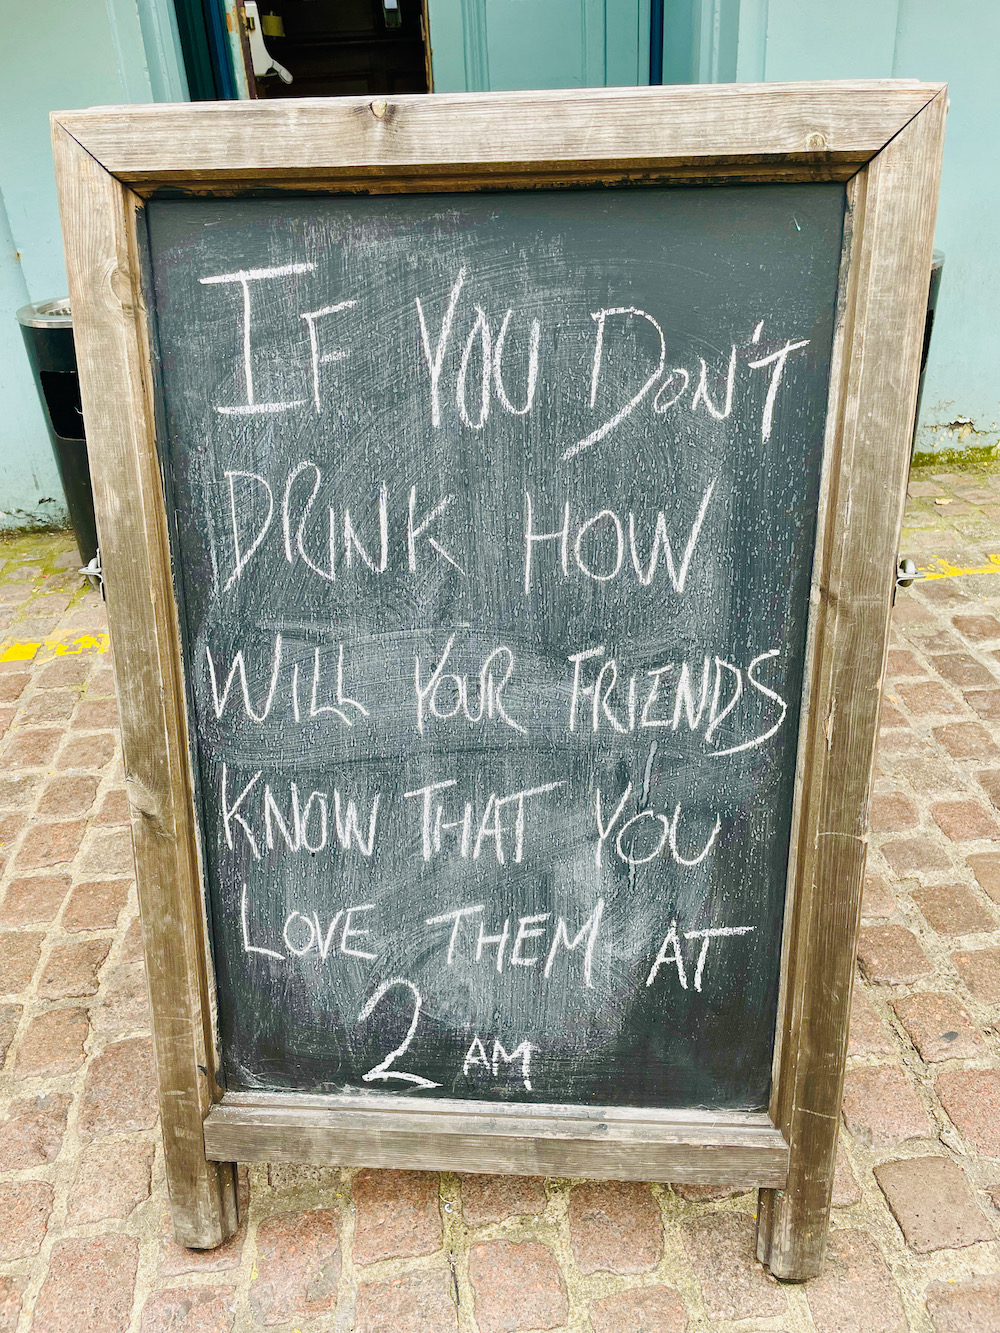 IF YOU DON'T
DRINK HOW
WILL YOUR FRIENDS
KNOW THAT YOU
LOVE THEM AT
2 AM